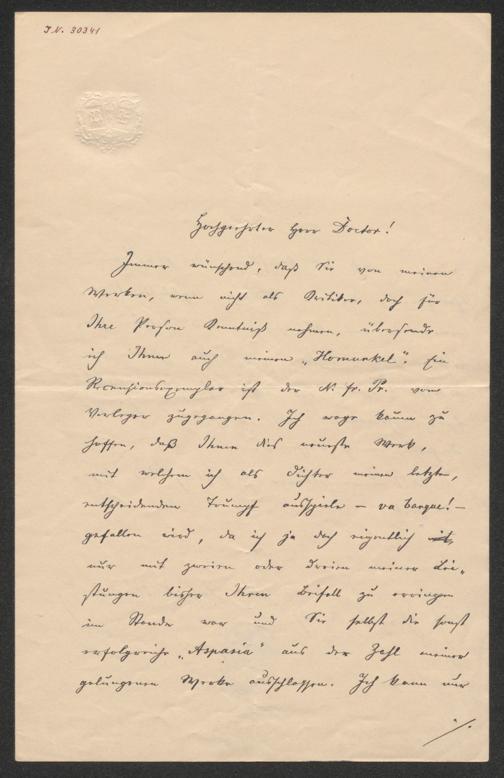 I.N. 30341
Hochgeehrter Herr Doctor!
Immer wünschend, daß Sie von meinen
Werken, wenn nicht als Kritiker, doch für
Ihre Person Kenntniß nehmen, übersende
ich Ihnen auch meinen „Homunkel“. Ein
Recensionsexemplar ist der N. fr. Pr. vom
Verleger zugegangen. Ich wage kaum zu
hoffen, daß Ihnen dies neueste Werk,
mit welchem ich als Dichter meinen letzten,
entscheidenden Trumpf ausspiele – va banque! –
gefallen wird, da ich ja doch eigentlich
nur mit zweien oder dreien meiner Lei-
stungen bisher Ihren Beifall zu erringen
im Stande war und Sie selbst die sonst
erfolgreiche „Aspasia“ aus der Zahl meiner
gelungenen Werke ausschlossen. Ich kann nur
./.